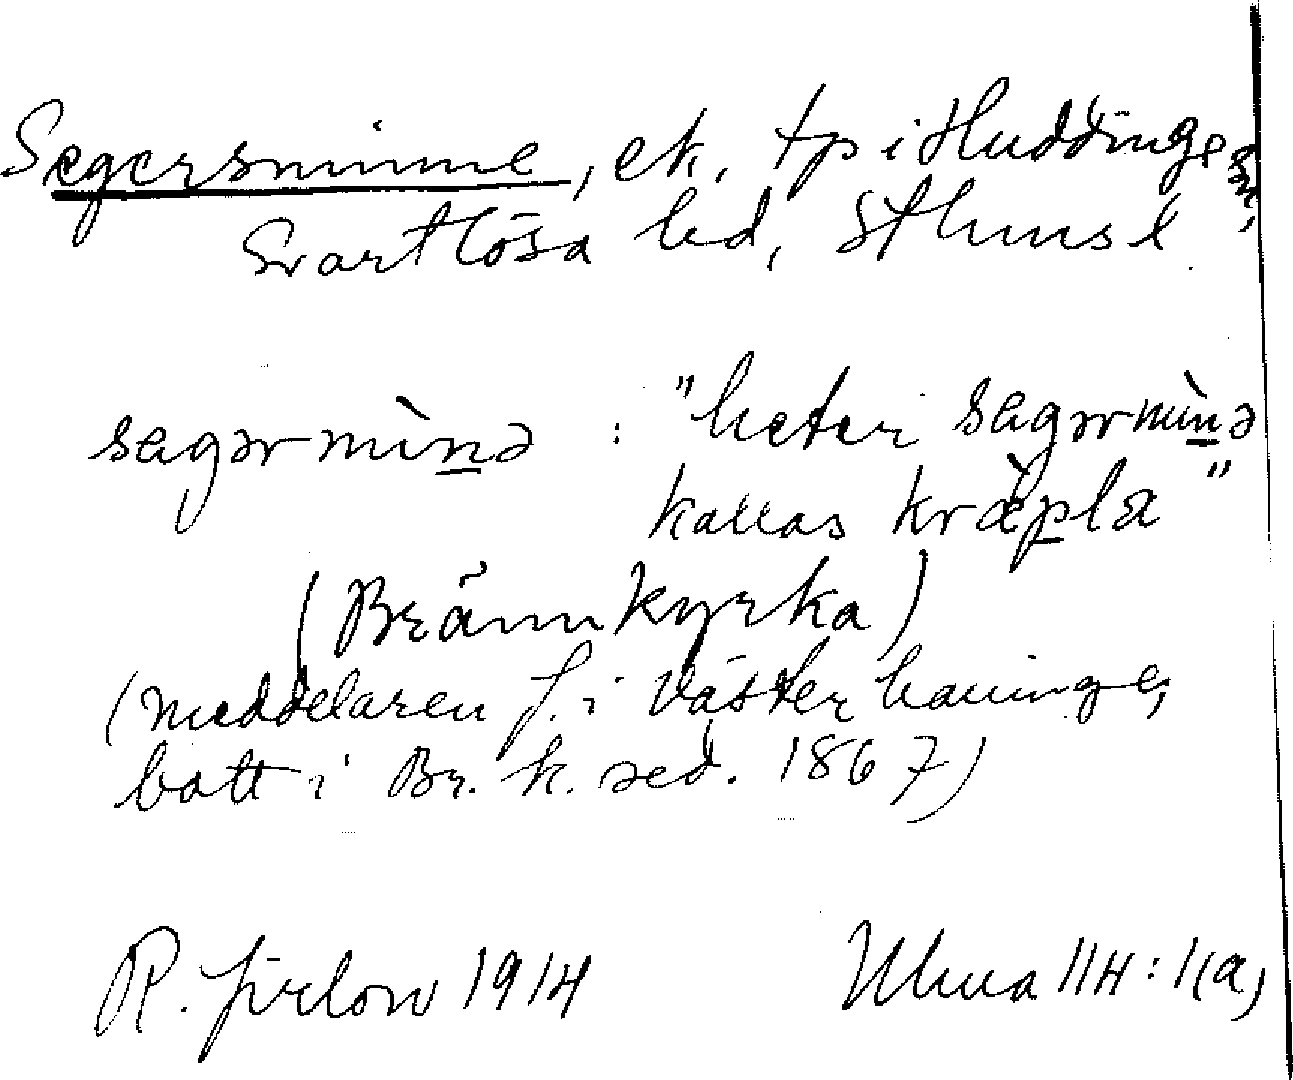 Segersminne, ek. tp i Huddinge sn,
Svartlösa hd, Sthms l.
segərmìnə : "heter segərmìnə
kallas kræ̀pla"
(Brännkyrka)
(meddelaren f. i Västerhaninge,
bott i Br. k. sed. 1867)
R. Jirlow 1914 Ulma 114:1(a)